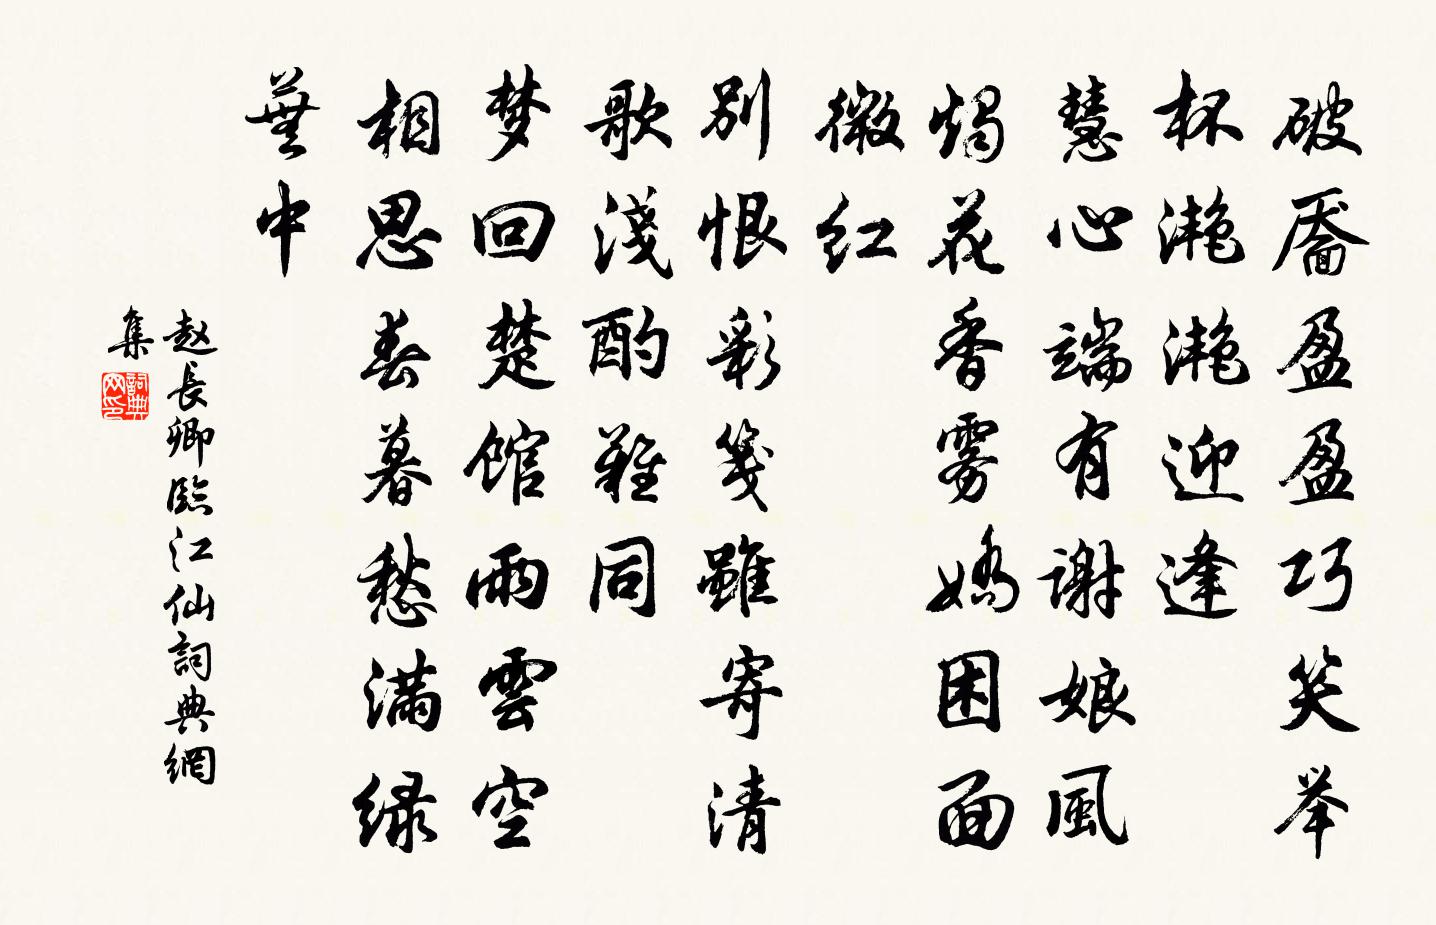 破靥盈盈巧笑举
杯滟滟迎逢
慧心端有谢娘風
烛花香雾娇困面
微红
别恨彩笺雖寄清
歌淺酌難同
梦回楚馆雨雲空
相思春暮愁满绿
蕪中
赵長卿臨江仙詞典網
集
詞典网印